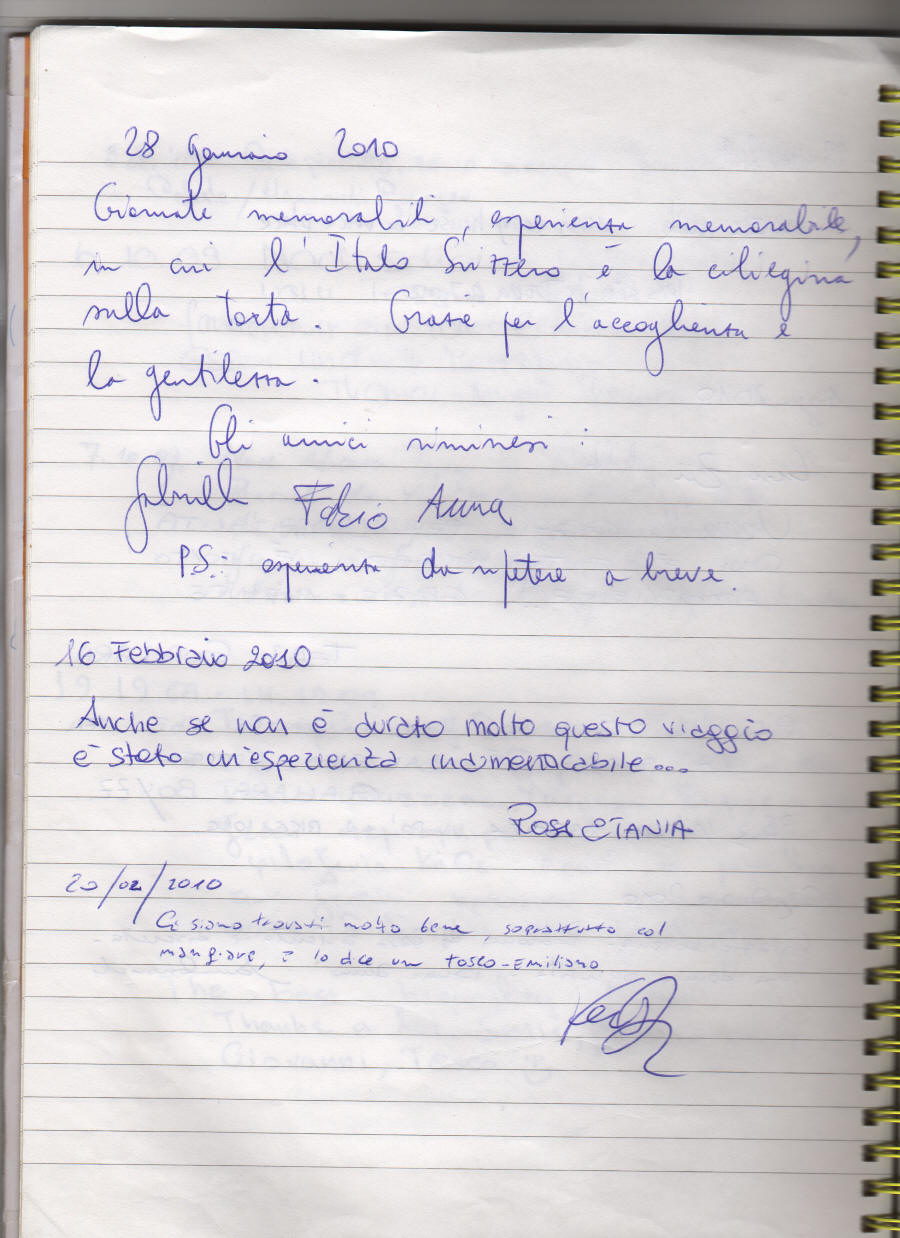 28 Gennaio 2010
Giornate memorabili, esperienza memorabile,
in cui l'Italo Svizzero è la ciliegina
sulla torta. Grazie per l'accoglienza e
la gentilezza.
Gli amici riminesi:
Gabriella Fabio Anna
P.S.: esperienza da ripetere a breve.
16 Febbraio 2010
Anche se non è durato molto questo viaggio
è stato un'esperienza indimenticabile...
20/02/2010
Ci siamo trovati molto bene, soprattutto col
mangiare, e lo dice un tosco-Emiliano